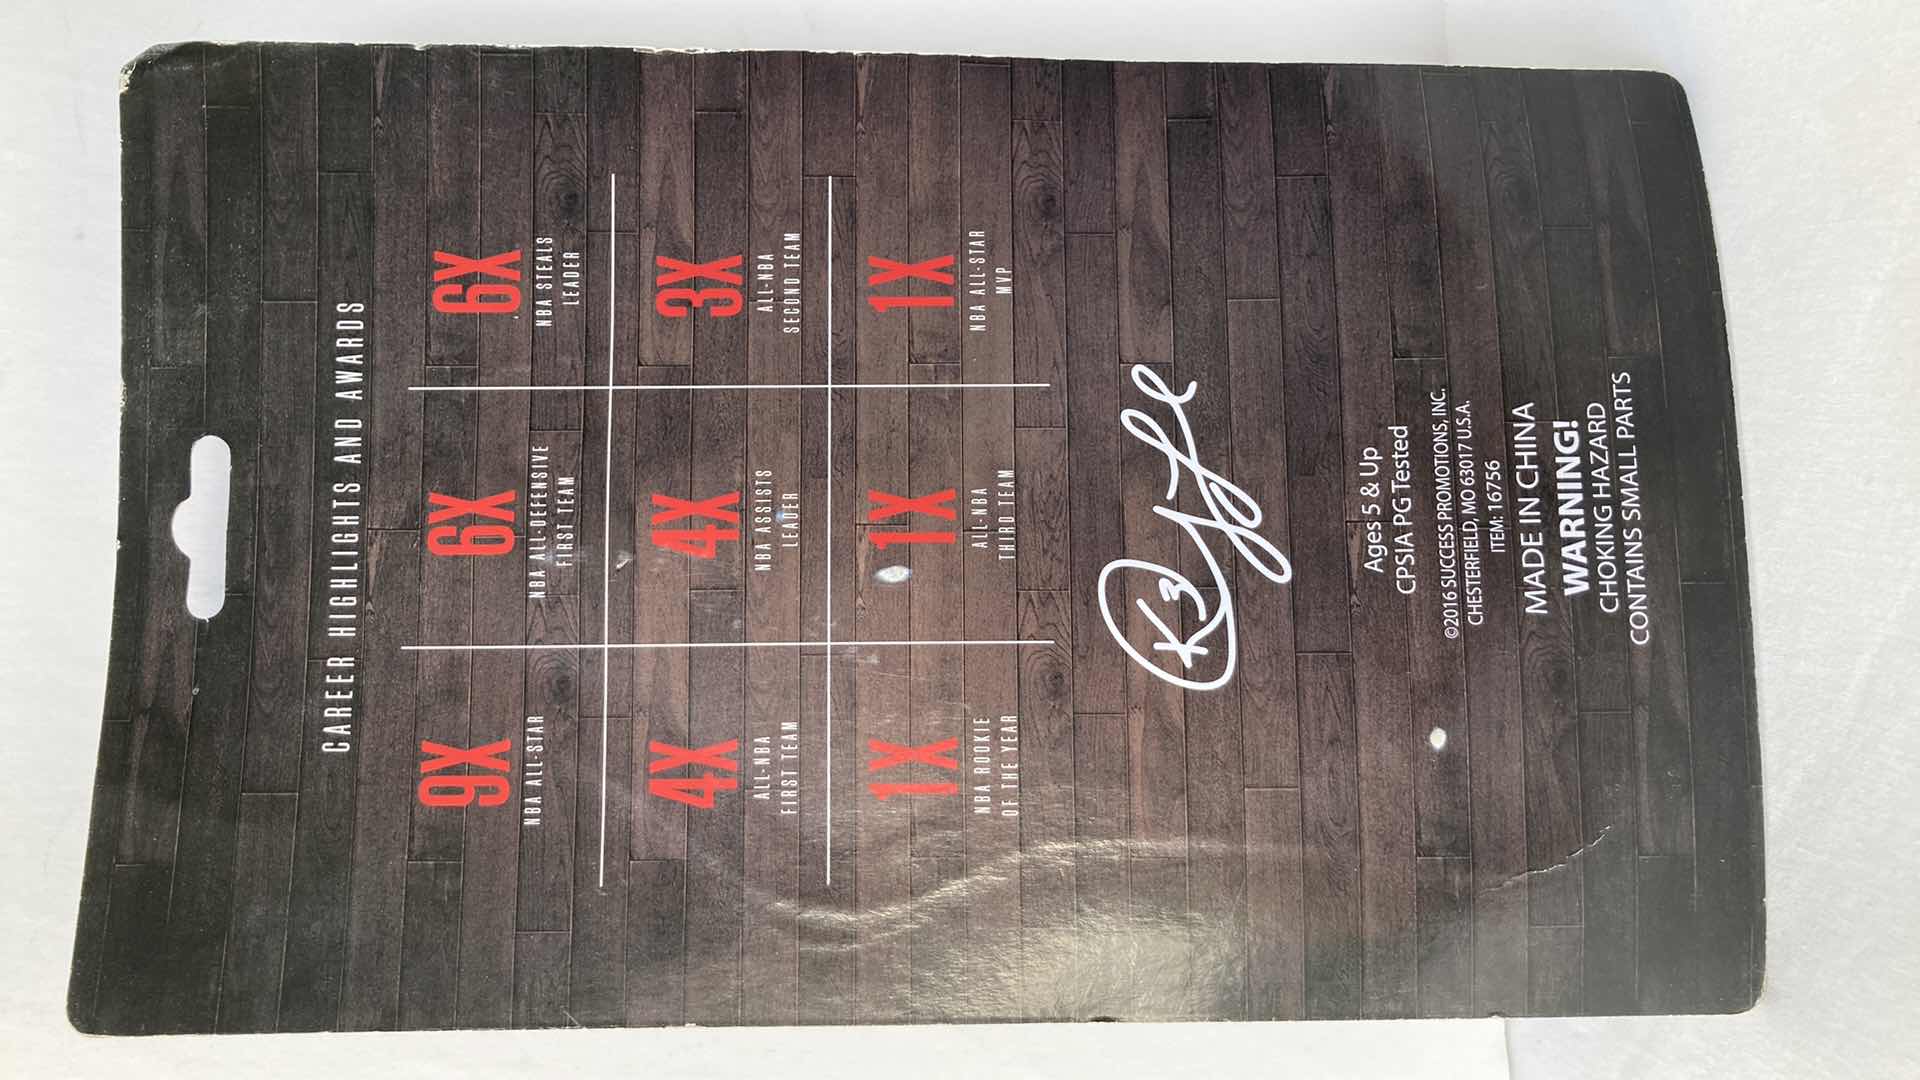 CAREER HIGHLIGHTS AND AWARDS
9X
NBA ALL-STAR
6X
NBA ALL-DEFENSIVE
FIRST TEAM
6X
NBA STEALS
LEADER
4X
ALL-NBA
FIRST TEAM
4X
NBA ASSISTS
LEADER
3X
ALL-NBA
SECOND TEAM
1X
NBA ROOKIE
OF THE YEAR
1X
ALL-NBA
THIRD TEAM
1X
NBA ALL-STAR
MVP
Ages 5 & Up
CPSIA PG Tested
©2016 SUCCESS PROMOTIONS, INC.
CHESTERFIELD, MO 63017 U.S.A.
ITEM: 16756
MADE IN CHINA
WARNING!
CHOKING HAZARD
CONTAINS SMALL PARTS